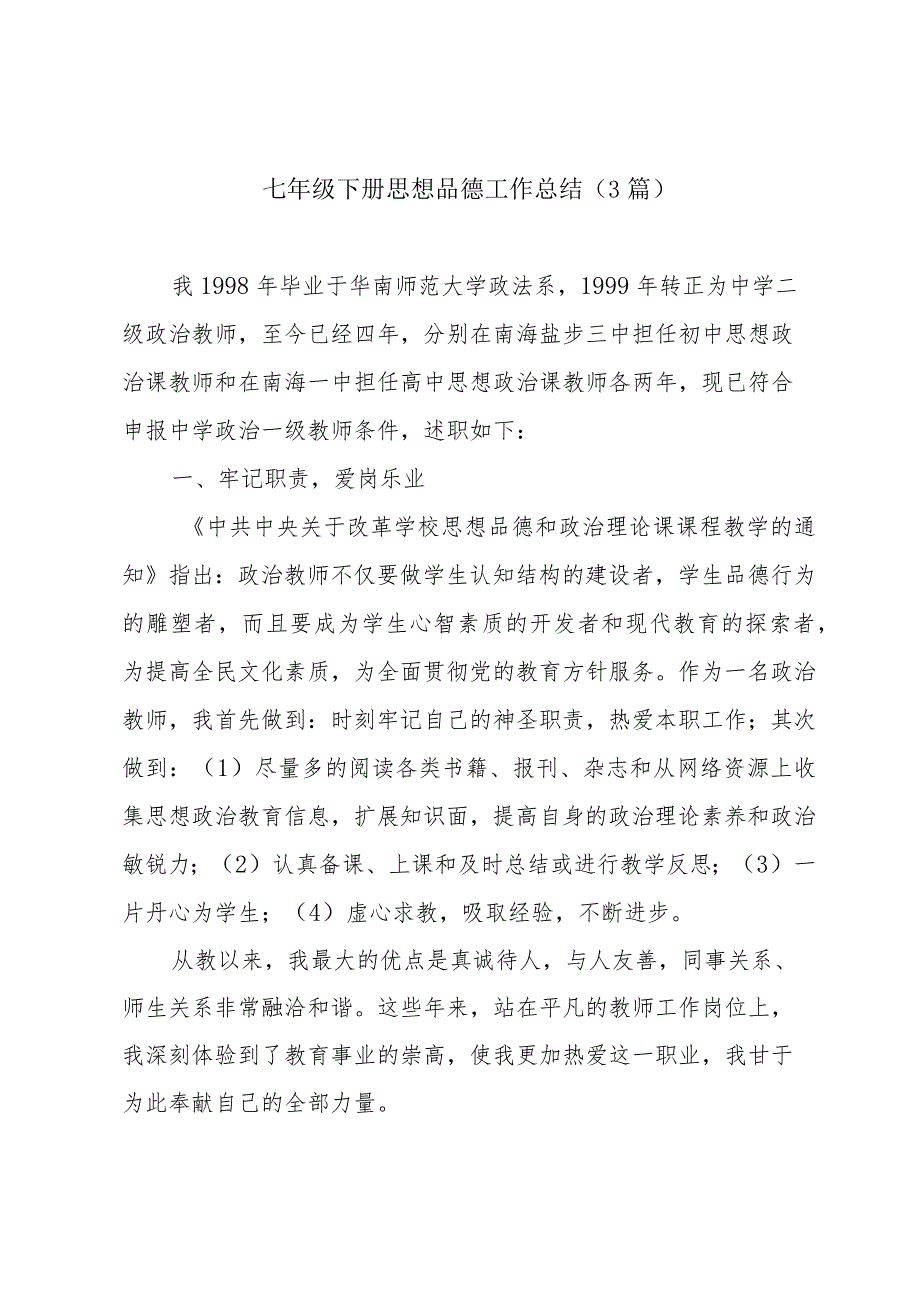 七年级下册思想品德工作总结（3 篇）
我 1998 年毕业于华南师范大学政法系，1999 年转正为中学二
级政治教师，至今已经四年，分别在南海盐步三中担任初中思想政
治课教师和在南海一中担任高中思想政治课教师各两年，现已符合
申报中学政治一级教师条件，述职如下：
一、牢记职责，爱岗乐业
《中共中央关于改革学校思想品德和政治理论课课程教学的通
知》指出：政治教师不仅要做学生认知结构的建设者，学生品德行为
的雕塑者，而且要成为学生心智素质的开发者和现代教育的探索者，
为提高全民文化素质，为全面贯彻党的教育方针服务。作为一名政治
教师，我首先做到：时刻牢记自己的神圣职责，热爱本职工作；其次
做到：（1）尽量多的阅读各类书籍、报刊、杂志和从网络资源上收
集思想政治教育信息，扩展知识面，提高自身的政治理论素养和政治
敏锐力；（2）认真备课、上课和及时总结或进行教学反思；（3）一
片丹心为学生；（4）虚心求教，吸取经验，不断进步。
从教以来，我最大的优点是真诚待人，与人友善，同事关系、
师生关系非常融洽和谐。这些年来，站在平凡的教师工作岗位上，
我深刻体验到了教育事业的崇高，使我更加热爱这一职业，我甘于
为此奉献自己的全部力量。